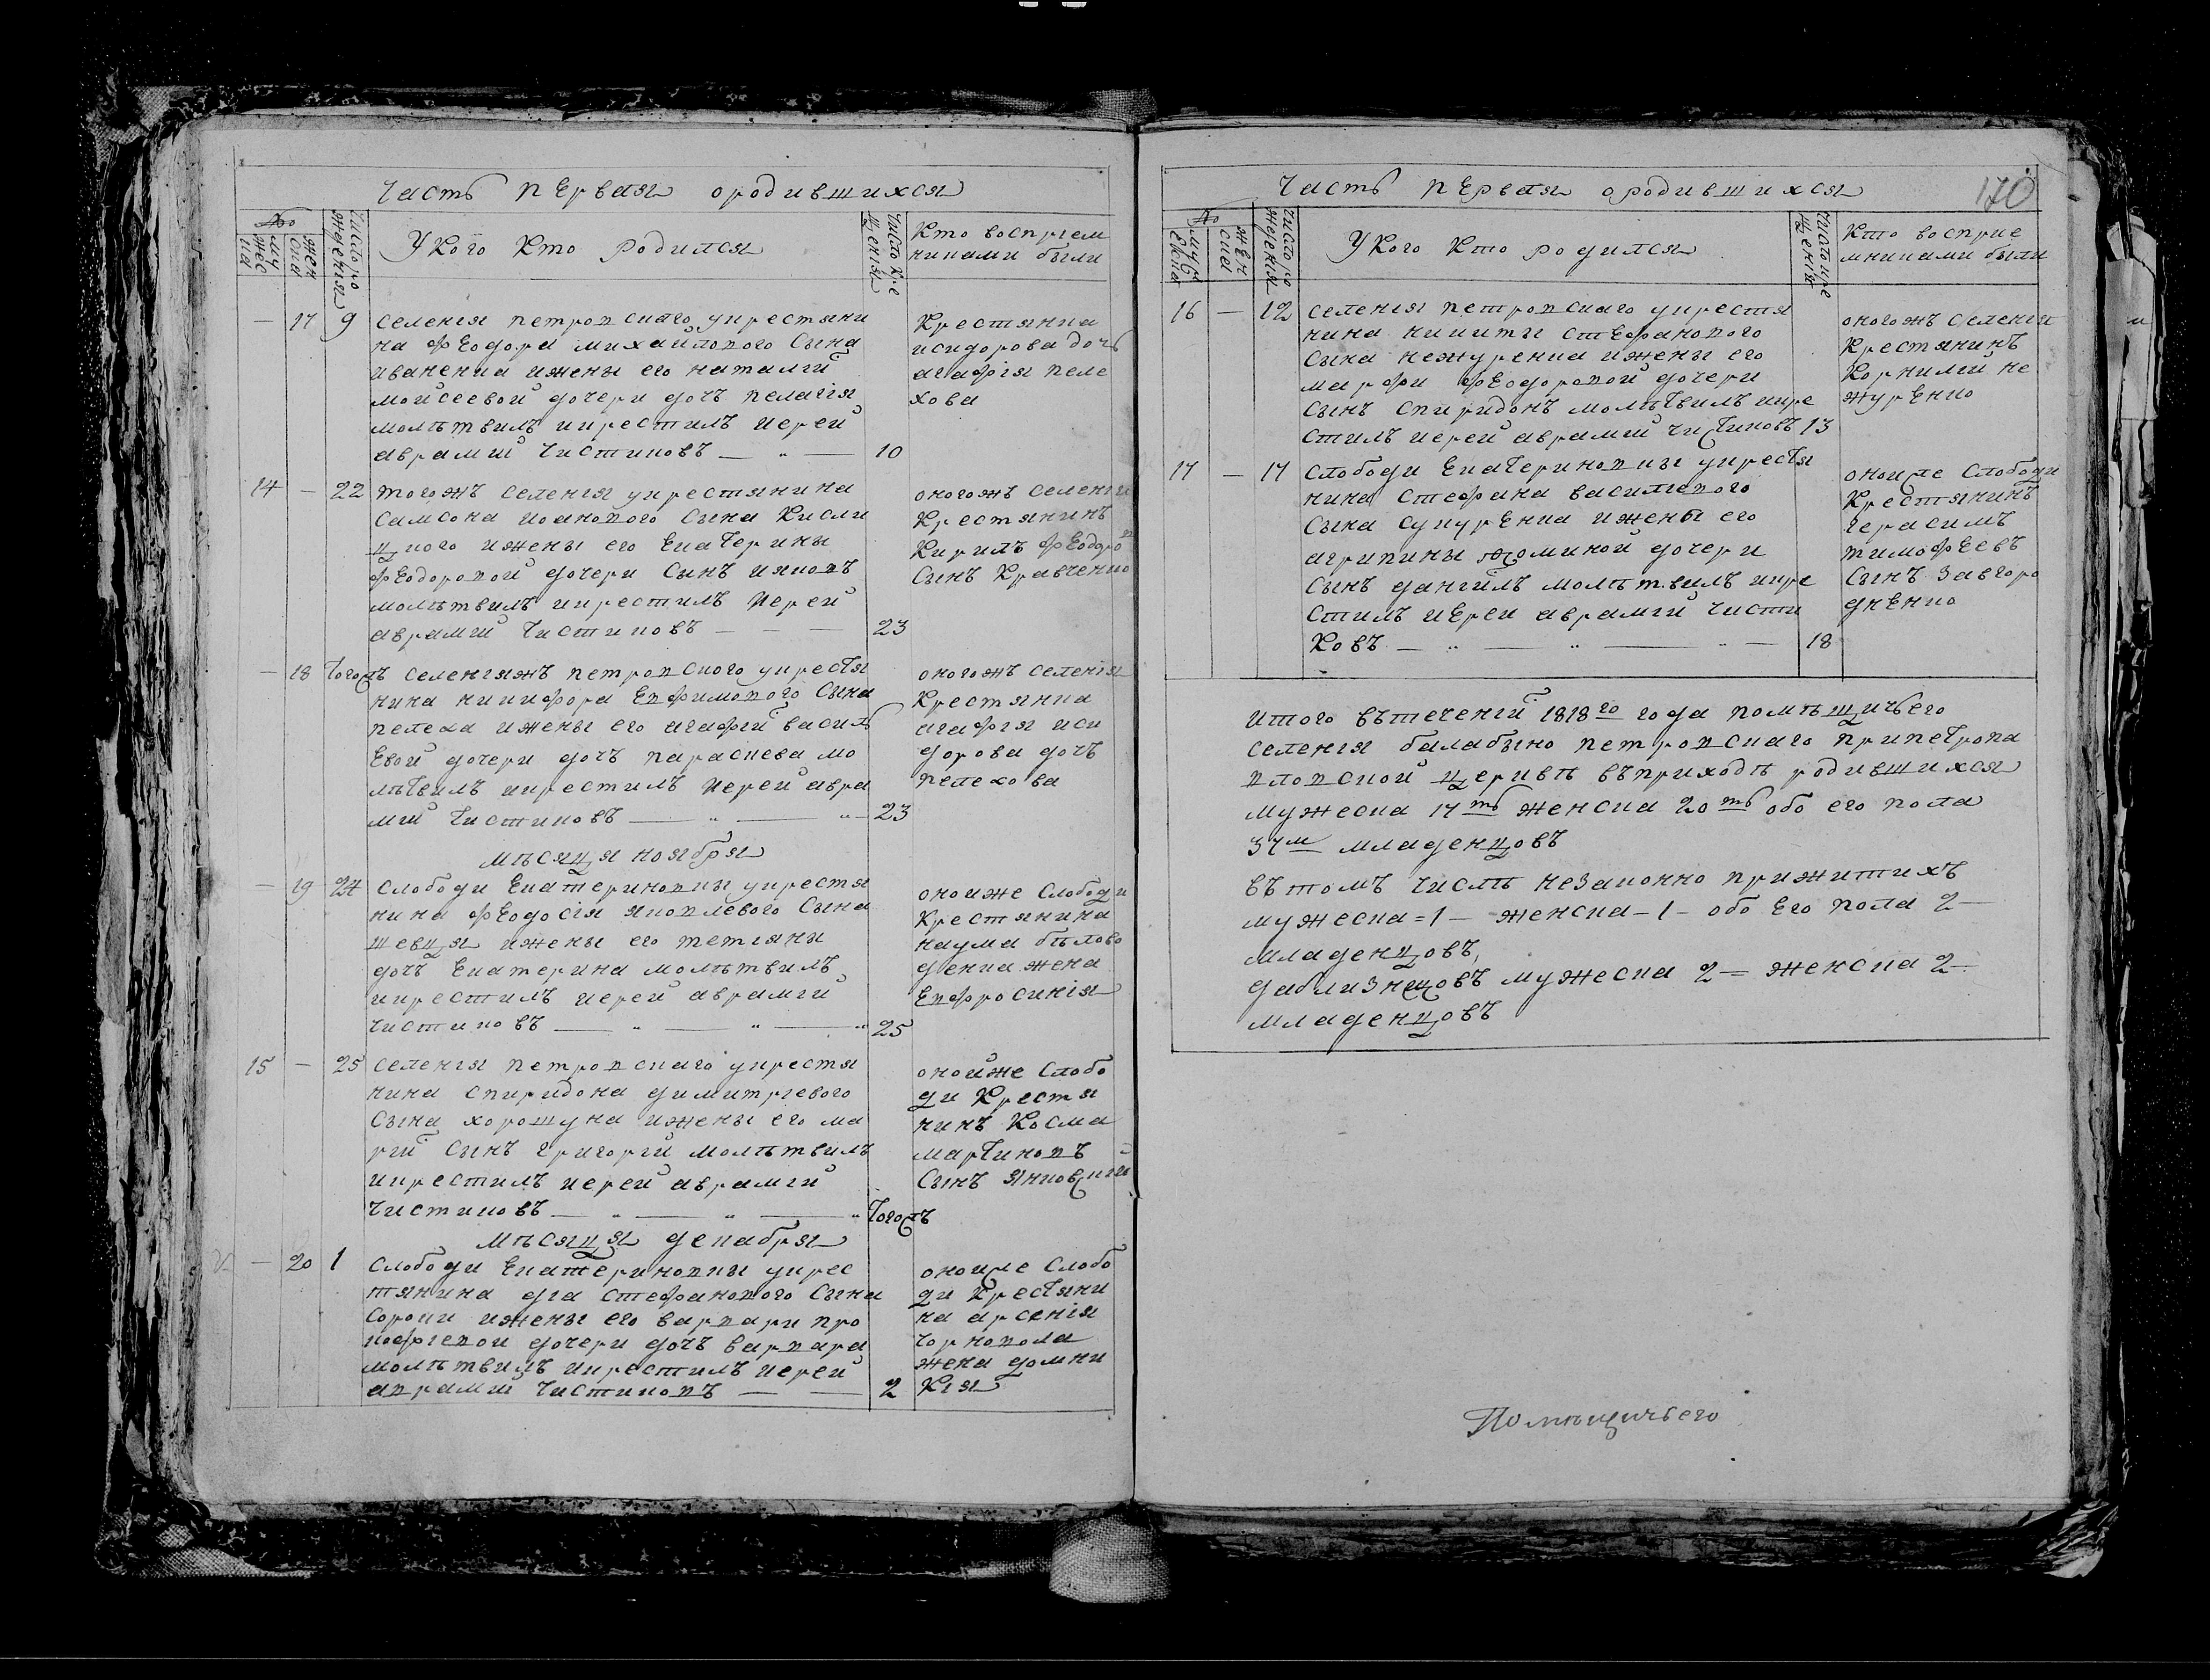 Часть первая ородившихся
№
муж еска
жен ска
Число ро жденїя
Укого Кто родился
Число кре щенїя
Кто воспрїем
никами были
— 17 9 селенїя петровскаго укрестяни
на Феодора михайлового Сына
иваненка ижены его наталїи
мойсеевой дочери дочь пелагїя
молитвилъ икрестилъ иерей
аврамїй Чистиковъ — „ — 10
Крестянка
исидорова дочь
агафїя пеле
хова
14 — 22 тогожъ селенїя укрестянина
самсона иоанового сына Кисли
цкого ижены его Екатерины
феодоровой дочери Сынъ яковъ
молитвилъ икрестилъ иерей
аврамїй Чистиковъ — — — 23
оногожъ селенїя
Крестянинъ
Кирилъ феодоров
Сынъ Кравченко
— 18 тогожъ селенїяжъ петровского укрестя
нина никифора Евфимового Сына
пелеха ижены его агафїи василь
евой дочери дочь параскева мо
литвилъ икрестилъ иерей авра
мїй Чистиковъ — „ — „ — 23
оногожъ селенїя
Крестянка
агафїя иси
дорова дочь
пелехова
мѣсяця ноября
— 19 24 слободи Екатериновки укрестя
нина феодосїя яковлевого Сына
шевця ижены его тетїяны
дочь Екатерина молитвилъ
икрестилъ иерей аврамїй
чистиковъ — „ — „ — „ 25
оноиже слободи
Крестянина
наума бѣлобо
денка жена
Евфросинїя
15 — 25 селенїя петровскаго укрестя
нина спиридона димитрїевого
Сына хорошуна ижены его ма
рїи Сынъ григорїй молитвилъ
икрестилъ иерей аврамїй
чистиковъ — „ — „ — „ тогожъ
онойже слобо
ди Крестя
нинъ Косма
мартиновъ
Сынъ Янковскїй
мѣсяця декабря
— 20 1 слободи Екатериновки укрес
тянина ‎стефанового Сына
сороки ижены его варвари про
кофїевой дочери дочь варвара
молитвилъ икрестилъ иерей
аврамїй чистиковъ — — 2
оноиже слобо
ди Крестяни
на арсенїя
чорновола
жена домни
Кїя
Часть первая ородившихся
170
№
муб еска
жен ска
Число ро жденїя
Укого Кто родился
Число кре щенїя
Кто восприе
мниками были
16 — 12 селенїя петровскаго укрестя
нина никиты стефанового
Сына нежуренка ижены его
марфи феодоровой дочери
сынъ спиридонъ молитвилъ икре
стилъ иерей аврамїй чистиковъ 13
оногожъ селенїя
Крестянинъ
Корнилїй не
журенко
17 — 17 слободи Екатериновки укрестя
нина стефана василїевого
сына супуренка ижены его
агрипины фоминой дочери
Сынъ данїилъ молитвилъ икре
стилъ иереи аврамїй чисти
Ковъ — „ — „ — „ — 18
оноиже слободи
Крестянинъ
герасимъ
тимофеевъ
Сынъ Завгоро
дненко
итого вътеченїи 1818го года помѣщичьего
селенїя балабыно петровскаго припетропа
вловской церквѣ въприходѣ родившихся
мужеска 17ть женска 20ть обо его пола
37м младенцовъ
вътомъ числѣ незаконно прижитихъ
мужеска = 1 — женска — 1 — обо Его пола 2 —
младенцовъ,
даблизнецовъ мужеска 2 — женска 2 —
младенцовъ
Помѣщичьего